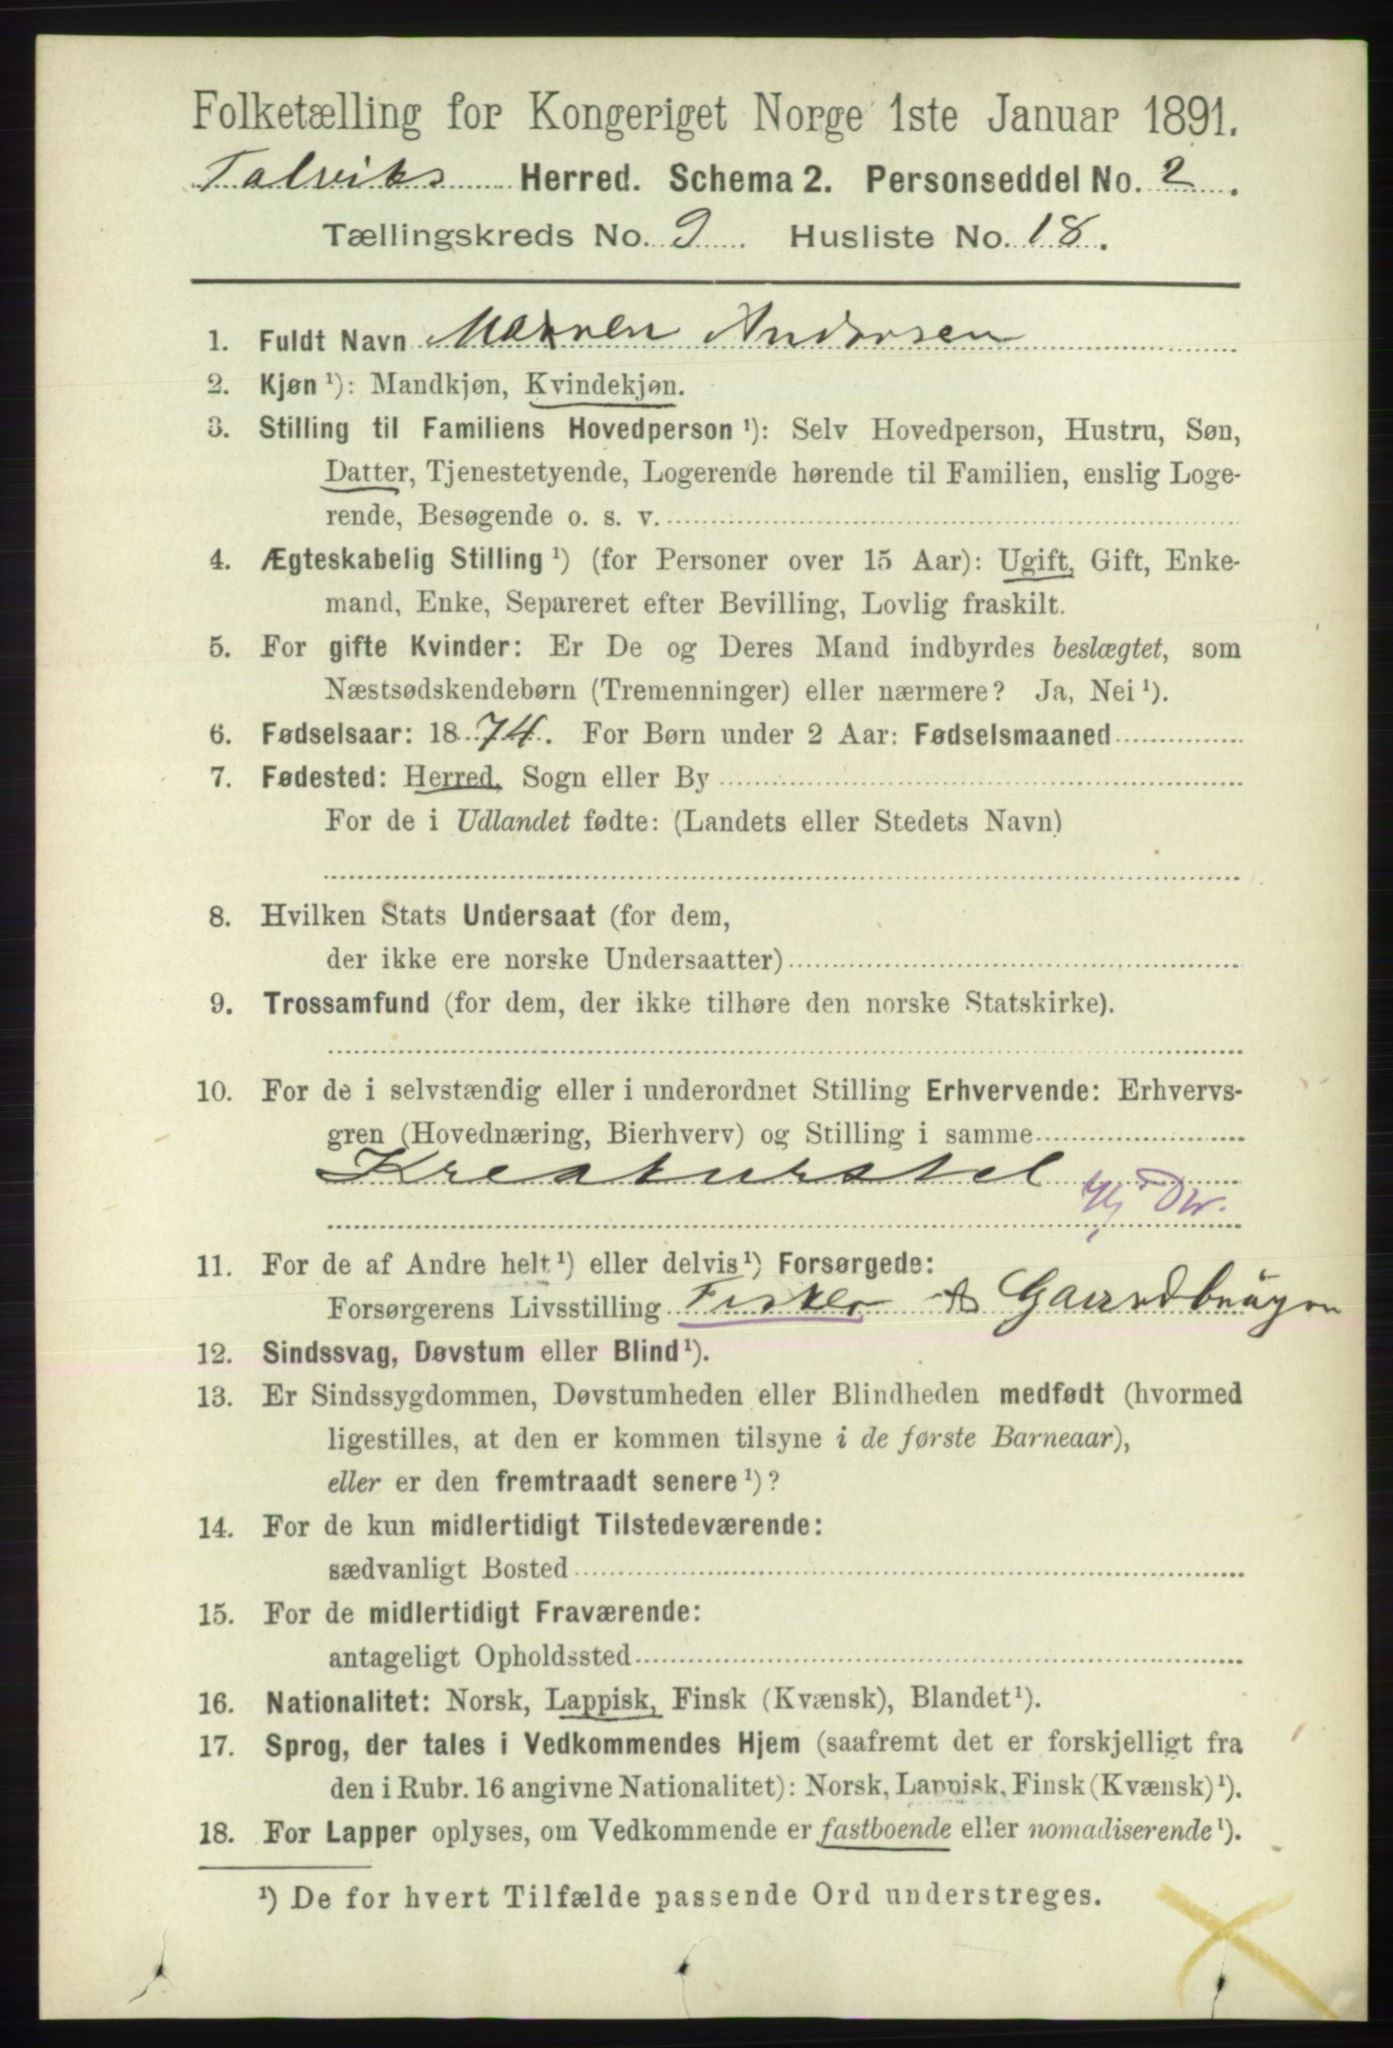 Folketælling for Kongeriget Norge 1ste Januar 1891.
Talviks Herred. Schema 2. Personseddel No. 2.
Tællingskreds No. 9. Husliste No. 18.
1. Fuldt Navn Maren Andersen
2. Kjøn ¹): Mandkjøn, Kvindekjøn.
3. Stilling til Familiens Hovedperson ¹): Selv Hovedperson, Hustru, Søn,
Datter, Tjenestetyende, Logerende hørende til Familien, enslig Loge-
rende, Besøgende o. s. v.
4. Ægteskabelig Stilling ¹) (for Personer over 15 Aar): Ugift, Gift, Enke-
mand, Enke, Separeret efter Bevilling, Lovlig fraskilt.
5. For gifte Kvinder: Er De og Deres Mand indbyrdes beslægtet, som
Næstsødskendebørn (Tremenninger) eller nærmere? Ja, Nei ¹).
6. Fødselsaar: 1874. For Børn under 2 Aar: Fødselsmaaned
7. Fødested: Herred, Sogn eller By
For de i Udlandet fødte: (Landets eller Stedets Navn)
8. Hvilken Stats Undersaat (for dem,
der ikke ere norske Undersaatter)
9. Trossamfund (for dem, der ikke tilhøre den norske Statskirke).
10. For de i selvstændig eller i underordnet Stilling Erhvervende: Erhvervs-
gren (Hovednæring, Bierhverv) og Stilling i samme
Kreaturstel
11. For de af Andre helt ¹) eller delvis ¹) Forsørgede:
Forsørgerens Livsstilling Fisker
12. Sindssvag, Døvstum eller Blind ¹).
13. Er Sindssygdommen, Døvstumheden eller Blindheden medfødt (hvormed
ligestilles, at den er kommen tilsyne i de første Barneaar),
eller er den fremtraadt senere ¹)?
14. For de kun midlertidigt Tilstedeværende:
sædvanligt Bosted
15. For de midlertidigt Fraværende:
antageligt Opholdssted
16. Nationalitet: Norsk, Lappisk, Finsk (Kvænsk), Blandet ¹).
17. Sprog, der tales i Vedkommendes Hjem (saafremt det er forskjelligt fra
den i Rubr. 16 angivne Nationalitet): Norsk, Lappisk, Finsk (Kvænsk) ¹).
18. For Lapper oplyses, om Vedkommende er fastboende eller nomadiserende ¹).
¹) De for hvert Tilfælde passende Ord understreges.